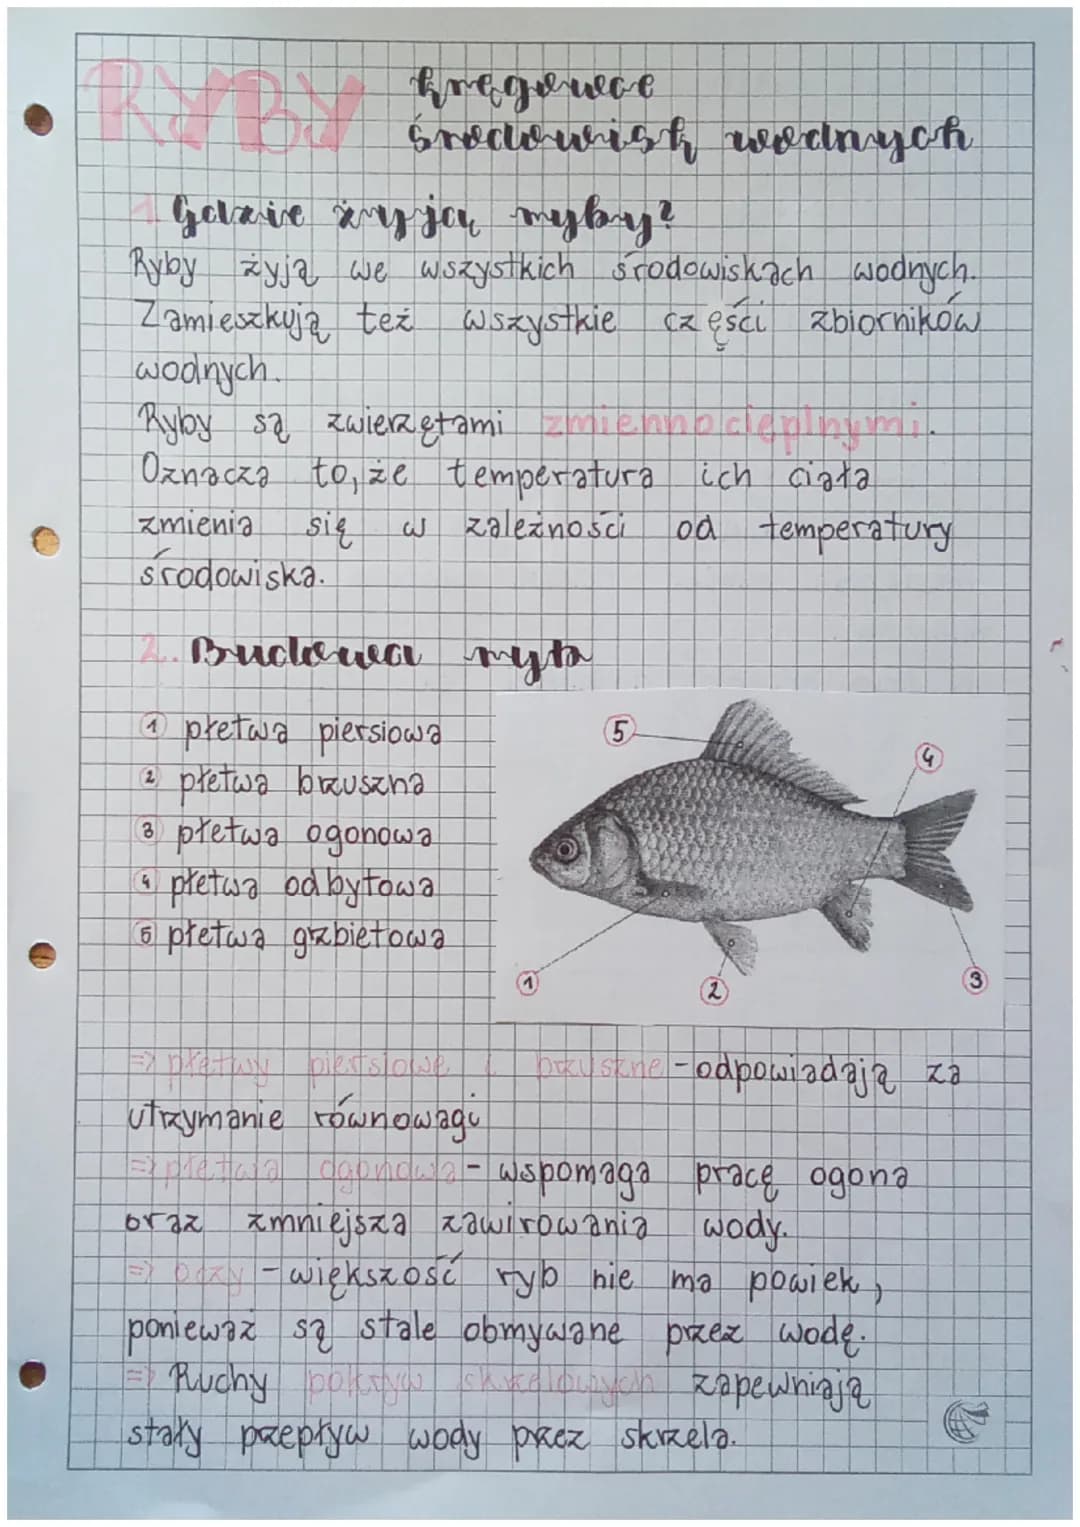 RYBY kręgowce
środowisk wodnych
1. Gdzie żyją ryby?
Ryby żyją we wszystkich środowiskach wodnych.
Zamieszkują też wszystkie części zbiorników
wodnych.
Ryby są zwierzętami zmiennocieplnymi.
Oznacza to, że temperatura ich ciała
zmienia się w zależności od temperatury
środowiska.
2. Budowa ryb
1 płetwa piersiowa
2 płetwa brzuszna
3 płetwa ogonowa
4 płetwa odbytowa
5 płetwa grzbietowa
5
4
1
2
3
=> płetwy piersiowe i brzuszne - odpowiadają za
utrzymanie równowagi
=> płetwa ogonowa - wspomaga pracę ogona
oraz zmniejsza zawirowania wody.
=> oczy - większość ryb nie ma powiek,
ponieważ są stale obmywane przez wodę.
=> Ruchy pokryw skrzelowych zapewniają
stały przepływ wody przez skrzela.